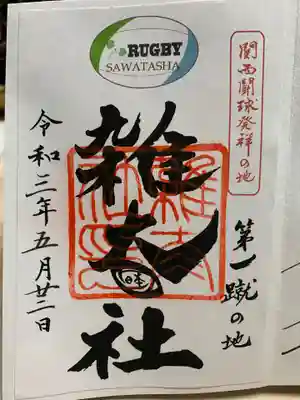 RUGBY
SAWATASHA
関西闘球発祥の地
第一蹴の地
雑太社
日本
令和三年五月廿二日